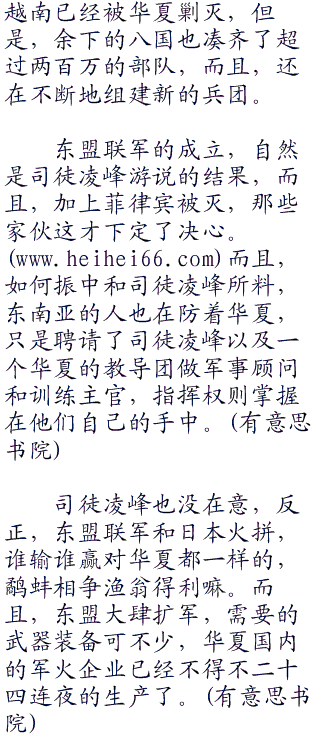 越南已经被华夏剿灭，但
是，余下的八国也凑齐了超
过两百万的部队，而且，还
在不断地组建新的兵团。
东盟联军的成立，自然
是司徒凌峰游说的结果，而
且，加上菲律宾被灭，那些
家伙这才下定了决心。
(www.heihei66.com)而且，
如何振中和司徒凌峰所料，
东南亚的人也在防着华夏，
只是聘请了司徒凌峰以及一
个华夏的教导团做军事顾问
和训练主官，指挥权则掌握
在他们自己的手中。(有意思
书院)
司徒凌峰也没在意，反
正，东盟联军和日本火拼，
谁输谁赢对华夏都一样的，
鹬蚌相争渔翁得利嘛。而
且，东盟大肆扩军，需要的
武器装备可不少，华夏国内
的军火企业已经不得不二十
四连夜的生产了。(有意思书
院)